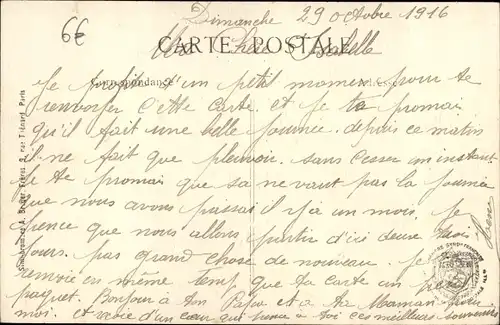 6€
Dimanche 29 octobre 1916
CARTE POSTALE
Ma Chère Isabelle
Correspondance
Je profite d'un petit moment pour te
renvoyer cette carte et je te promai
qu'il fait une belle journee. depuis ce matin
il ne fait que pleuvoir. sans cesser m instant
Je te promai que sa ne vaut pas la journia
que nous avons passai il y a un mois. Je
pence que nous allons partir d'ici deux trois
jours. pas grand chose de nouveau. Je te
renvoie en même temp que ta carte un petit
paquet. Bonjour à ton Papa et a ta Maman pour
moi. et reçoie d'un cœur qui pense a toi ces meilleurs souvenirs